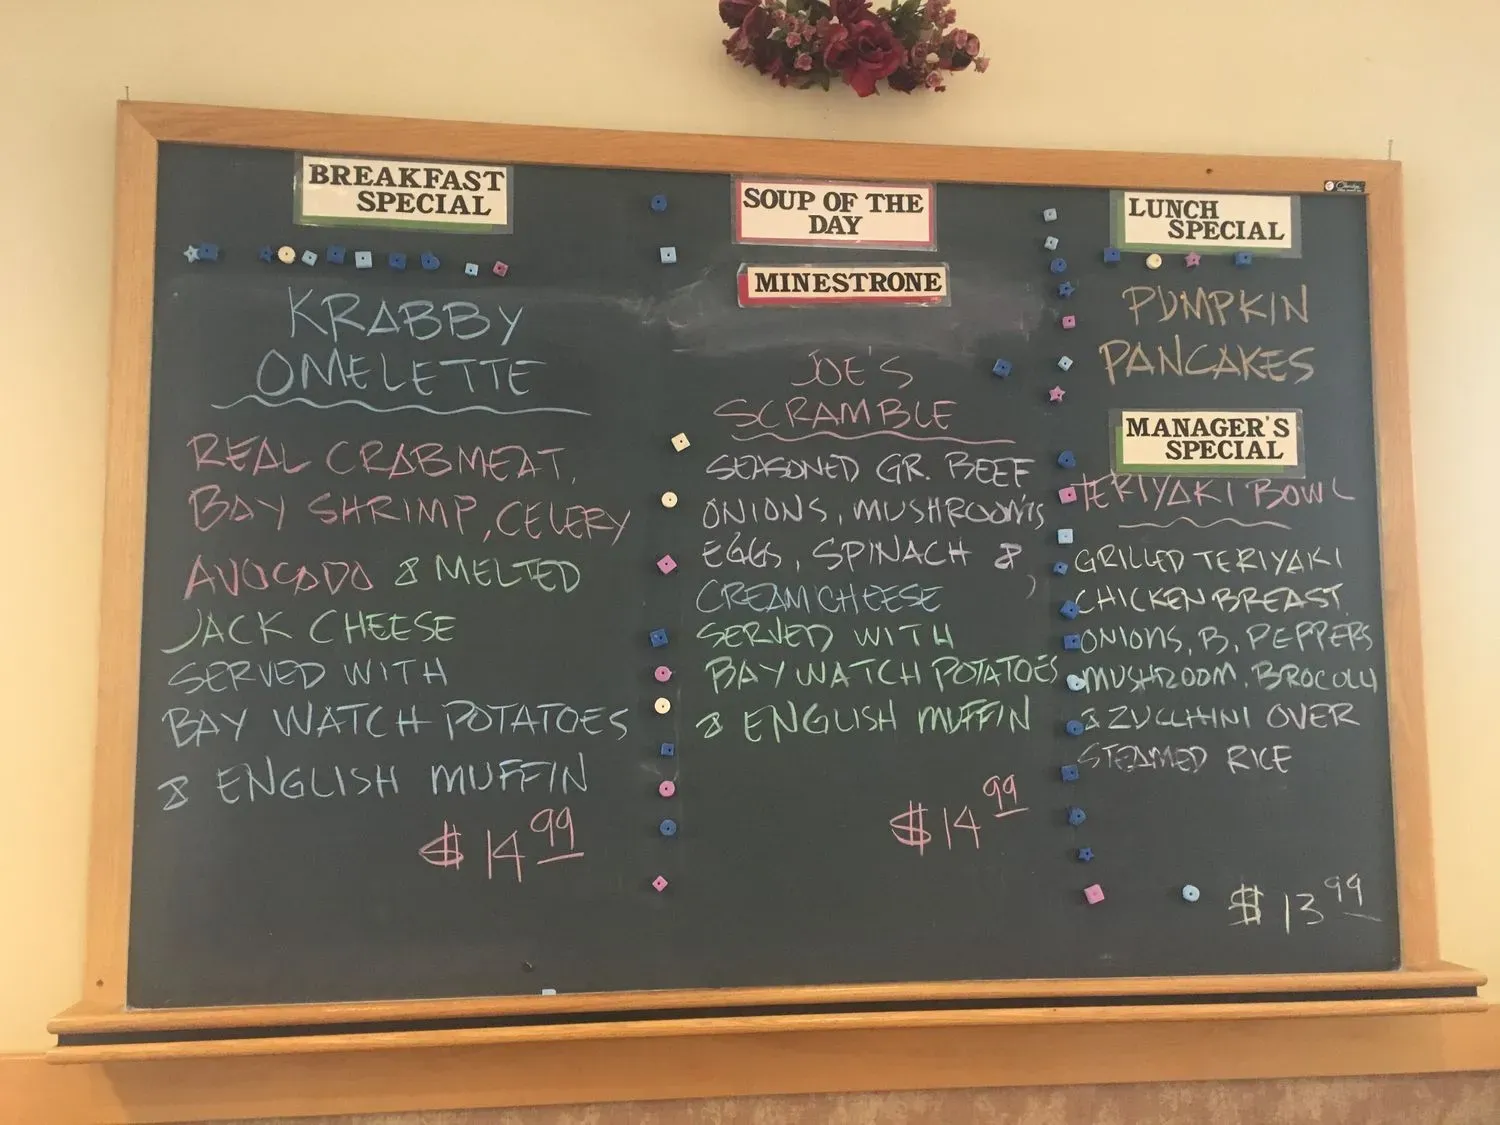 BREAKFAST
SPECIAL
KRABBY
OMELETTE
REAL CRABMEAT,
BAY SHRIMP, CELERY
AVOCADO & MELTED
JACK CHEESE
SERVED WITH
BAY WATCH POTATOES
& ENGLISH MUFFIN
$14.99
SOUP OF THE
DAY
MINESTRONE
JOE'S
SCRAMBLE
SEASONED GR. BEEF
ONIONS, MUSHROOMS
EGGS, SPINACH &
CREAM CHEESE
SERVED WITH
BAY WATCH POTATOES
& ENGLISH MUFFIN
$14 99
LUNCH
SPECIAL
PUMPKIN
PANCAKES
MANAGER'S
SPECIAL
TERIYAKI BOWL
GRILLED TERIYAKI
CHICKEN BREAST,
ONIONS, B. PEPPERS
MUSHROOM, BROCOLLI
& ZUCCHINI OVER
STEAMED RICE
$13 99